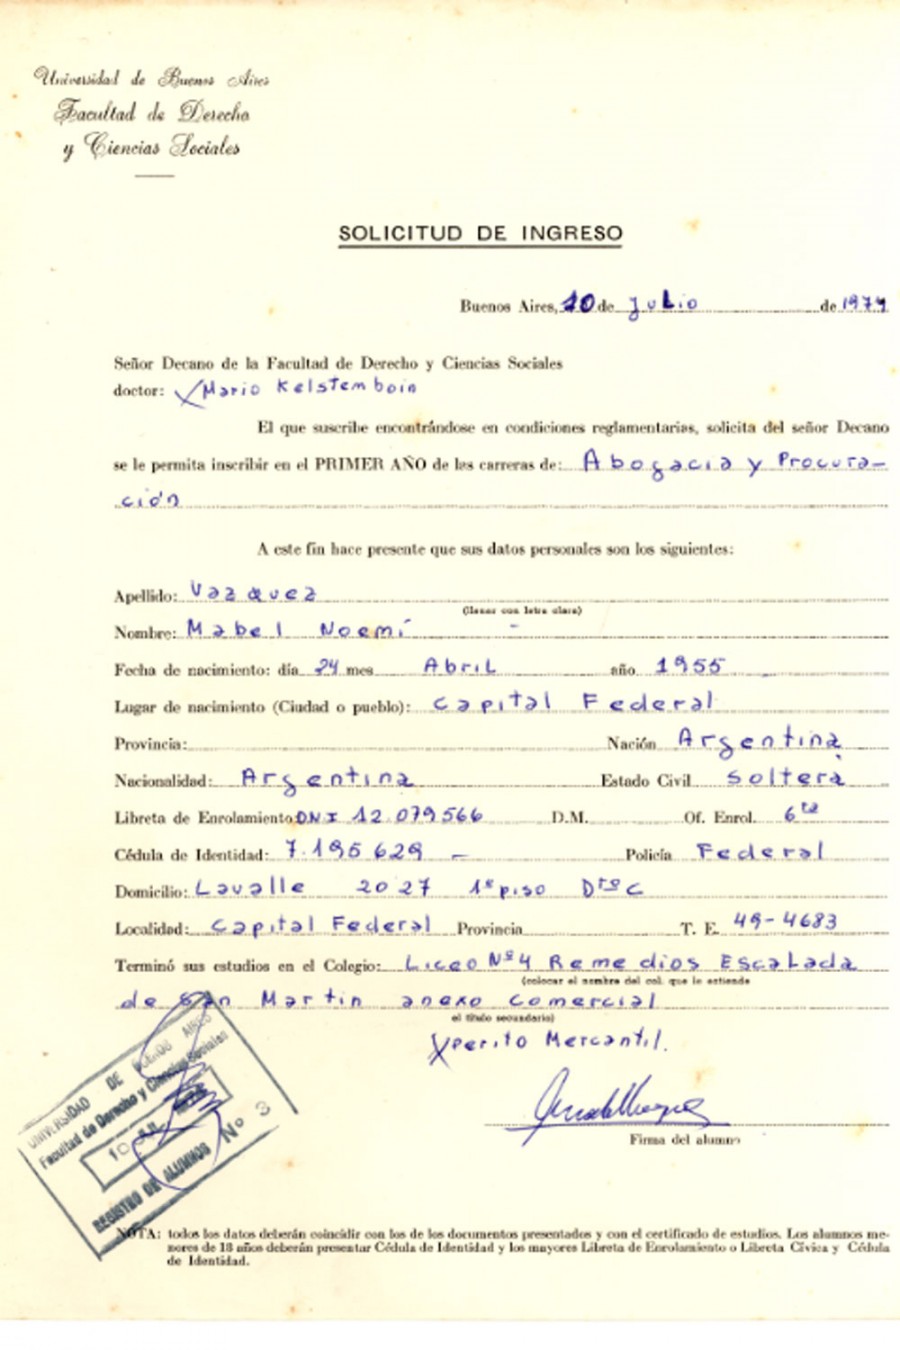 Universidad de Buenos Aires
Facultad de Derecho
y Ciencias Sociales
SOLICITUD DE INGRESO
Buenos Aires, 10 de Julio de 1974
Señor Decano de la Facultad de Derecho y Ciencias Sociales
doctor: Mario Kelstemboin
El que suscribe encontrándose en condiciones reglamentarias, solicita del señor Decano
se le permita inscribir en el PRIMER AÑO de las carreras de: Abogacia y Procura-
ción
A este fin hace presente que sus datos personales son los siguientes:
Apellido: Vazquez
(llenar con letra clara)
Nombre: Mabel Noemí
Fecha de nacimiento: día 24 mes Abril año 1955
Lugar de nacimiento (Ciudad o pueblo): Capital Federal
Provincia: Nación Argentina
Nacionalidad: Argentina Estado Civil soltera
Libreta de Enrolamiento DNI 12.079566 D.M. Of. Enrol. 6ta
Cédula de Identidad: 7.195629 – Policía Federal
Domicilio: Lavalle 2027 1º piso Dto C
Localidad: Capital Federal Provincia T. E. 49-4683
Terminó sus estudios en el Colegio: Liceo Nº4 Remedios Escalada
(colocar el nombre del col. que le extiende
de San Martin anexo Comercial
el título secundario)
Xperito Mercantil.
Firma del alumno
UNIVERSIDAD DE BUENOS AIRES
Facultad de Derecho y Ciencias Sociales
10 JUL
REGISTRO DE ALUMNOS Nº 3
NOTA: todos los datos deberán coincidir con los de los documentos presentados y con el certificado de estudios. Los alumnos me-
nores de 18 años deberán presentar Cédula de Identidad y los mayores Libreta de Enrolamiento o Libreta Cívica y Cédula
de Identidad.